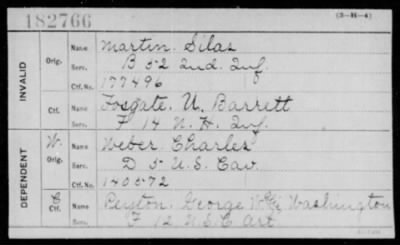 182766
(3-H-4)
INVALID
Orig. Name Martin Silas
Serv. B 52 Ind. Inf
Ctf. No. 177496
Ctf. Name Fosgate, U. Barrett
Serv. F 14 N.H. Inf.
DEPENDENT
W. Orig. Name Weber Charles
Serv. D 5 U.S. Cav.
Ctf. No. 140572
C Ctf. Name George Washington
Serv. F 12 U.S.C Art